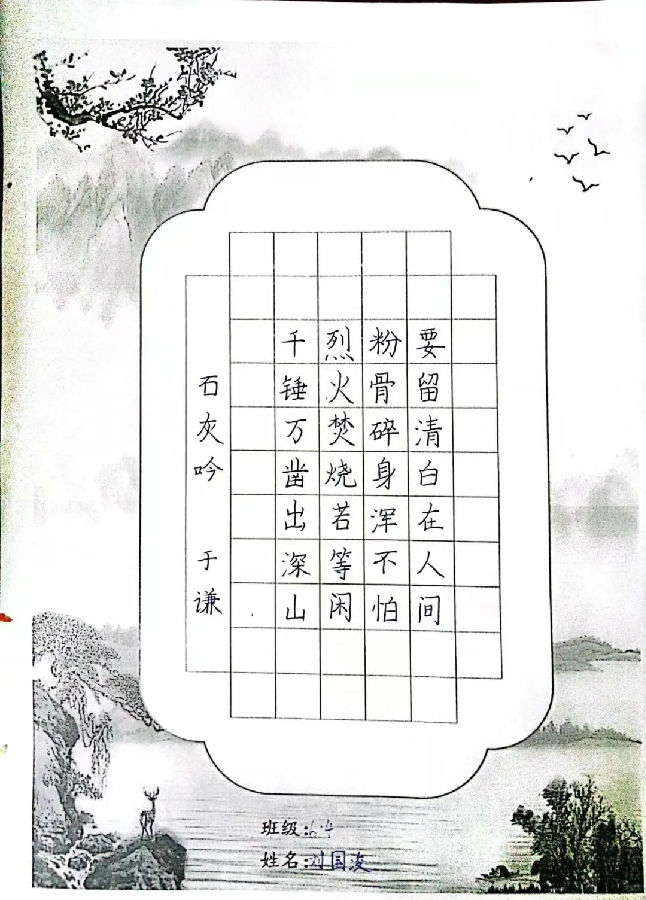 石灰吟 于谦
千锤万凿出深山
烈火焚烧若等闲
粉骨碎身浑不怕
要留清白在人间
班级:6.4
姓名:刘国凌